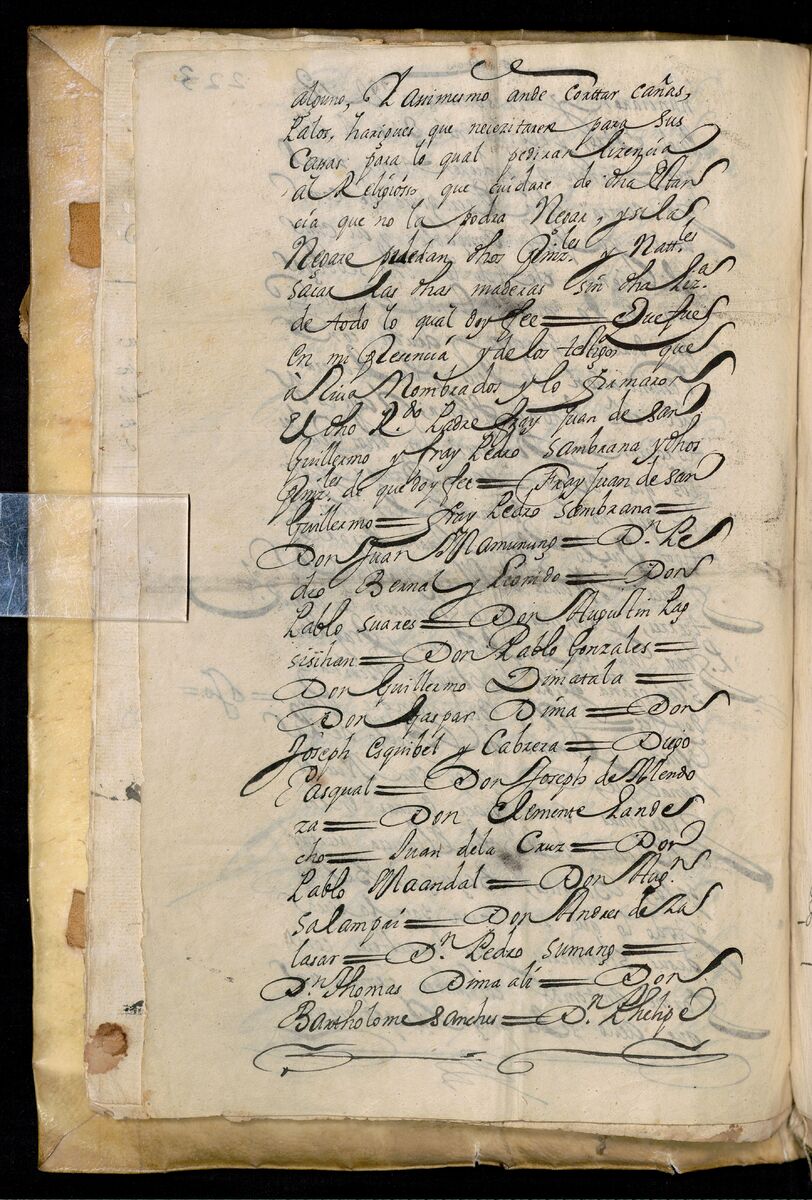 alguno, Y assimismo ande Conttar cañas,
Palos, hariques que nezezitaren para sus
Cassas para lo qual pediran lizencia
al Religiosso que cuidare de dha Estan
cia que no la podra Negar, y si las
Negare puedan dhos Prinz.les y Natt.les
sacar las dhas maderas sin dha Liz.a
de todo lo qual doy fee = Que fue
en mi Presencia y de los testigos que
àRiva Nombrados y lo firmaron
El dho R.do Padre fray Juan de San
Guillermo y fray Pedro Sambrana y dhos
Prinz.les de que doy fee = Fray Juan de san
Guillermo = fray Pedro Sambrana =
Don Juan Mamunung = D.n Pe
dro Bernal y = Don
Pablo Suares = Don Augustin Pag
sisihan = Don Pablo Gonzales =
Don Guillermo Dimatala =
Don Gaspar Dima = Don
Joseph Esquibel y Cabrera = Diego
Pasqual = Don Joseph de Mendo
za = Don Clemente Lande
cho = Juan dela Cruz = Don
Pablo Maandal = Don Aug.n
Salampai = Don Andres de Za
lasar = D.n Pedro Sumang =
D.n Thomas Dimaali = Don
Bartholome Sanches = D.n Phelipe